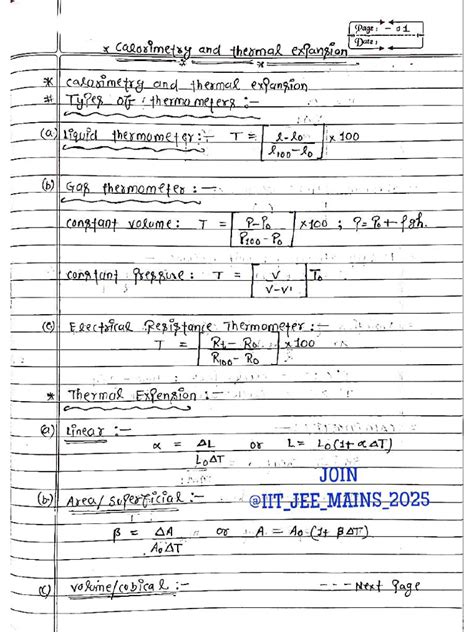 Page: - 01
Date:
* Calorimetry and thermal expansion
* Calorimetry and thermal expansion
# Types of thermometers :-
(a) Liquid thermometer :- T = [l-l₀ / l₁₀₀-l₀] x 100
(b) Gas thermometer :-
constant volume : T = [P-P₀ / P₁₀₀-P₀] x100 ; P = P₀ + ρgh.
constant Pressure : T = [V / V-V'] T₀
(c) Electrical Resistance Thermometer :-
T = [Rt - R₀ / R₁₀₀ - R₀] x 100
* Thermal Expension :-
(a) Linear :-
α = ΔL / L₀ΔT or L = L₀(1+αΔT)
JOIN
(b) Area/Superficial :- @IIT_JEE_MAINS_2025
β = ΔA / A₀ΔT or A = A₀(1+ βΔT)
(c) volume/cobical :- --- Next Page